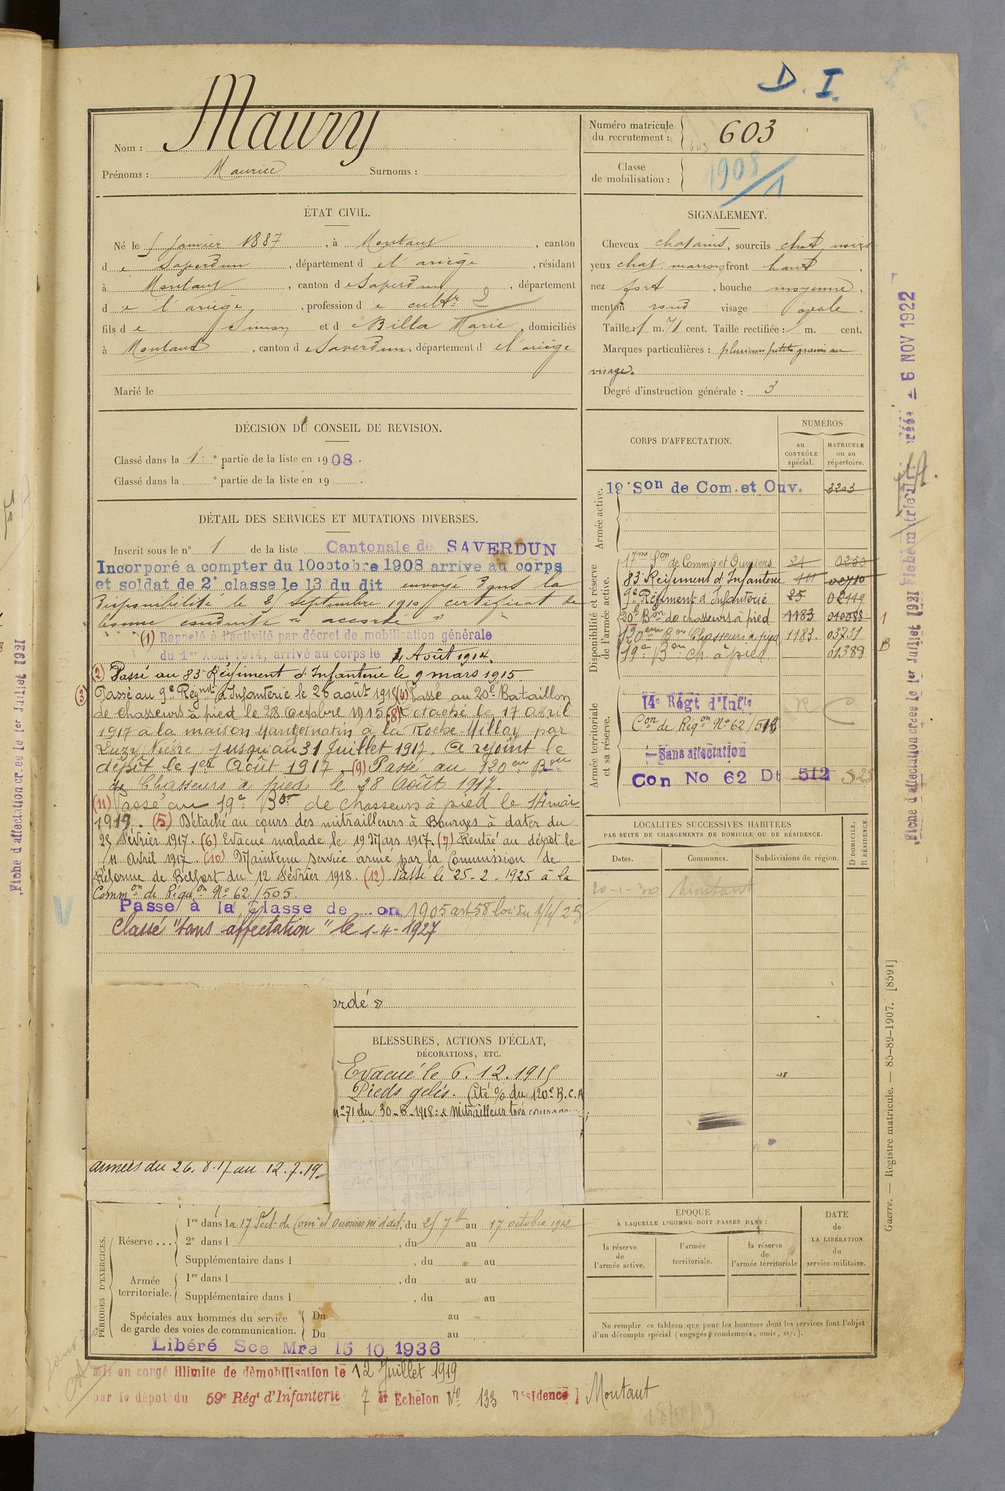 D. I.
Nom : Maury
Prénoms : Maurice Surnoms :
Numéro matricule du recrutement : 603
Classe de mobilisation : 1908/1
ÉTAT CIVIL.
Né le 5 Janvier 1887, à Montaut, canton
d e Saverdun, département d e l'ariège, résidant
à Montaut, canton d e Saverdun, département
d e l'ariège, profession d e cultr 2
fils d e Simon et d e Billa Marie, domiciliés
à Montaut, canton d e Saverdun, département d e l'ariège
Marié le
SIGNALEMENT.
Cheveux chatains, sourcils chat noirs
yeux chat. marrons front haut,
nez fort, bouche moyenne,
menton rond visage ovale.
Taille : 1 m. 71 cent. Taille rectifiée : m. cent.
Marques particulières : plusieurs petits grains au
visage.
Degré d'instruction générale : 3
DÉCISION DU CONSEIL DE REVISION.
Classé dans la 1e partie de la liste en 1908.
Classé dans la e partie de la liste en 19 .
DÉTAIL DES SERVICES ET MUTATIONS DIVERSES.
Inscrit sous le n° 1 de la liste Cantonale de SAVERDUN
Incorporé a compter du 10 octobre 1908 arrivé au corps
et soldat de 2e classe le 13 du dit envoyé dans la
disponibilité le 25 septembre 1910 certificat de
bonne conduite " accordé "
(1) Rappelé à l'activité par décret de mobilisation générale
du 1er Août 1914, arrivé au corps le 4 Août 1914.
(2) Passé au 83e Régiment d'Infanterie le 9 mars 1915
(3) Passé au 9e Régnt d'Infanterie le 26 août 1915 (4) Passé au 20e Bataillon
de chasseurs à pied le 28 Octobre 1915 (8) Détaché le 17 Abril
1917 à la maison à la Roche Millay par
Luzy Nièvre jusqu'au 31 Juillet 1917. A rejoint le
dépôt le 1er Août 1917 (9) Passé au 120eme Bon
de Chasseurs à pied le 28 Août 1917.
(11) Passé au 19e Bon de chasseurs à pied le mai
1919. (5) Détaché au cours des mitrailleurs à Bourges à dater du
25 Février 1917. (6) Evacué malade le 19 Mars 1917. (7) Rentré au dépôt le
11 Avril 1917. (10) Maintenu service armé par la Commission de
Réforme de Belfort du 12 Février 1918. (12) Passé le 25-2-1925 à la
Common de Réqon No 62/505
Passé à la Classe de on 1905 art 58 loi du 1/4/23
Classé "sans affectation" le 1-4-1927
ordé
BLESSURES, ACTIONS D'ÉCLAT,
DÉCORATIONS, ETC.
Evacué le 6.12.1915
Pieds gelés. Cité O/ du 120e B.C.A
n°71 du 30-6-1918 : « Mitrailleur très
armées du 26.8.17 au 12.7.19
CORPS D'AFFECTATION.
NUMÉROS
au CONTRÔLE spécial.
MATRICULE ou au répertoire.
Armée active.
19e Son de Com. et Ouv. 3203
Disponibilité et réserve de l'armée active.
17me Son de Commis et Ouvriers 21
83e Régiment d'Infanterie 411 00710
9e Régiment d'Infanterie 25 02449
20e Bon de chasseurs à pied 1183 010088
120eme Bon Chasseurs à pied 1183. 03751
19e Bon Ch. à pied 01388
Armée territoriale et sa réserve.
14e Régt d'Infie
Con de Réqon No 62/512
Sans affectation
Con No 62 Dt 512 525
LOCALITÉS SUCCESSIVES HABITÉES
PAR SUITE DE CHANGEMENTS DE DOMICILE OU DE RÉSIDENCE.
Dates. Communes. Subdivisions de région. D DOMICILE. R RÉSIDENCE.
20-1-30 Montaut
PÉRIODES D'EXERCICES.
Réserve ... 1re dans la 17 Sect. de Comis et Ouvriers m' d'ad. du 25 7bre au 17 octobre 1912
2e dans l , du au
Supplémentaire dans l , du au
Armée territoriale. 1re dans l , du au
Supplémentaire dans l , du au
Spéciales aux hommes du service de garde des voies de communication. Du au
Du au
Libéré Sce Mre 15 10 1936
ÉPOQUE
À LAQUELLE L'HOMME DOIT PASSER DANS :
la réserve de l'armée active.
l'armée territoriale.
la réserve de l'armée territoriale
DATE de LA LIBÉRATION du service militaire.
Ne remplir ce tableau que pour les hommes dont les services font l'objet
d'un décompte spécial (engagés, condamnés, omis, etc.).
mis en congé illimité de démobilisation le 12 Juillet 1919
par le dépôt du 59e Régt d'Infanterie 7 et Echelon No 133 Résidence à Montaut
Guerre. — Registre matricule. — 85-89-1907. [8591]
6 NOV 1922
Fiche d'affectation créée le 1er Juillet 1921
Fiche d'affectation créée le 1er Juillet 1921